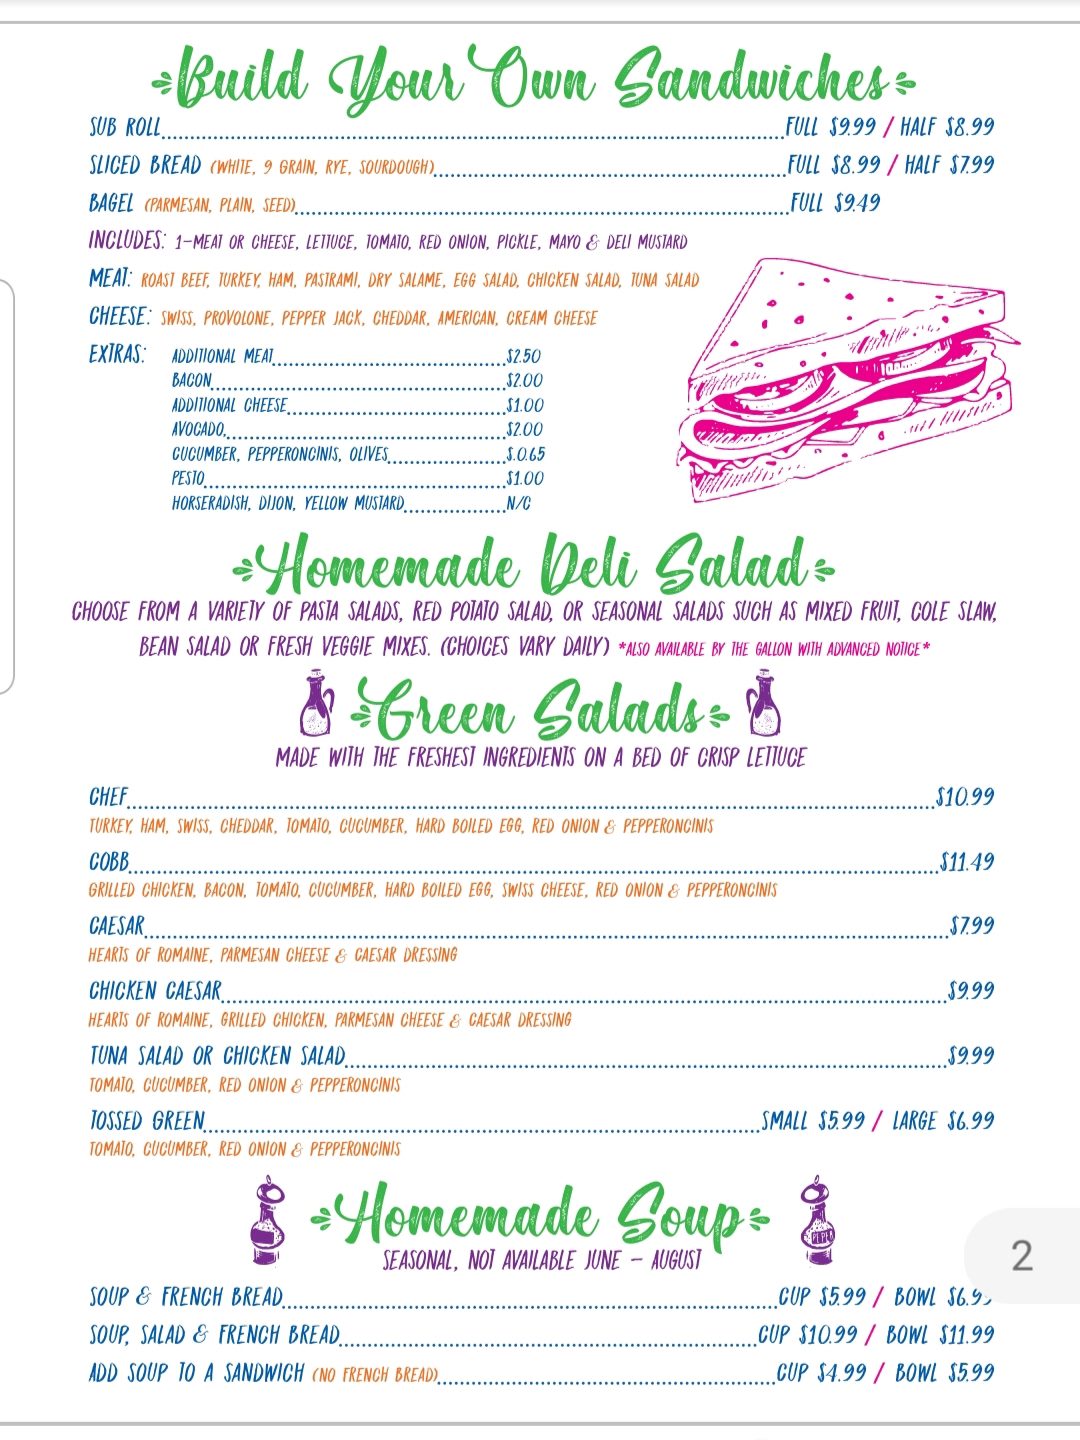 Build Your Own Sandwiches
SUB ROLL FULL $9.99 / HALF $8.99
SLICED BREAD (WHITE, 9 GRAIN, RYE, SOURDOUGH) FULL $8.99 / HALF $7.99
BAGEL (PARMESAN, PLAIN, SEED) FULL $9.49
INCLUDES: 1-MEAT OR CHEESE, LETTUCE, TOMATO, RED ONION, PICKLE, MAYO & DELI MUSTARD
MEAT: ROAST BEEF, TURKEY, HAM, PASTRAMI, DRY SALAME, EGG SALAD, CHICKEN SALAD, TUNA SALAD
CHEESE: SWISS, PROVOLONE, PEPPER JACK, CHEDDAR, AMERICAN, CREAM CHEESE
EXTRAS: ADDITIONAL MEAT $2.50
BACON $2.00
ADDITIONAL CHEESE $1.00
AVOCADO $2.00
CUCUMBER, PEPPERONCINIS, OLIVES $.0.65
PESTO $1.00
HORSERADISH, DIJON, YELLOW MUSTARD N/C
Homemade Deli Salad
CHOOSE FROM A VARIETY OF PASTA SALADS, RED POTATO SALAD, OR SEASONAL SALADS SUCH AS MIXED FRUIT, COLE SLAW,
BEAN SALAD OR FRESH VEGGIE MIXES. (CHOICES VARY DAILY) *ALSO AVAILABLE BY THE GALLON WITH ADVANCED NOTICE*
Green Salads
MADE WITH THE FRESHEST INGREDIENTS ON A BED OF CRISP LETTUCE
CHEF $10.99
TURKEY, HAM, SWISS, CHEDDAR, TOMATO, CUCUMBER, HARD BOILED EGG, RED ONION & PEPPERONCINIS
COBB $11.49
GRILLED CHICKEN, BACON, TOMATO, CUCUMBER, HARD BOILED EGG, SWISS CHEESE, RED ONION & PEPPERONCINIS
CAESAR $7.99
HEARTS OF ROMAINE, PARMESAN CHEESE & CAESAR DRESSING
CHICKEN CAESAR $9.99
HEARTS OF ROMAINE, GRILLED CHICKEN, PARMESAN CHEESE & CAESAR DRESSING
TUNA SALAD OR CHICKEN SALAD $9.99
TOMATO, CUCUMBER, RED ONION & PEPPERONCINIS
TOSSED GREEN SMALL $5.99 / LARGE $6.99
TOMATO, CUCUMBER, RED ONION & PEPPERONCINIS
Homemade Soup
SEASONAL, NOT AVAILABLE JUNE - AUGUST
2
SOUP & FRENCH BREAD CUP $5.99 / BOWL $6.99
SOUP, SALAD & FRENCH BREAD CUP $10.99 / BOWL $11.99
ADD SOUP TO A SANDWICH (NO FRENCH BREAD) CUP $4.99 / BOWL $5.99